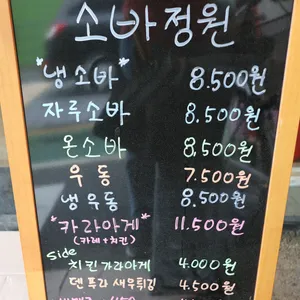 소바정원
*냉소바* 8.500원
자루소바 8.500원
온소바 8,500원
우동 7.500원
냉우동 8.500원
*카라아게* 11.500원
(카레+치킨)
side
치킨가라아게 4.000원
덴푸라 새우튀김 4.500원